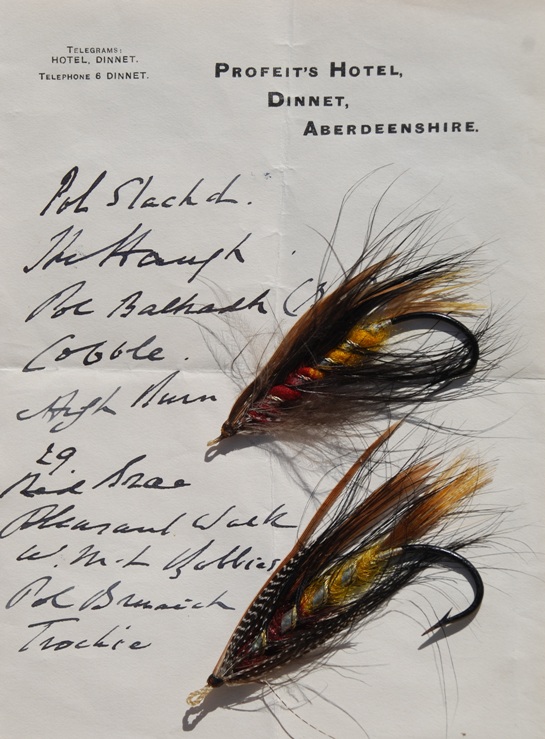 TELEGRAMS:
HOTEL, DINNET.
TELEPHONE 6 DINNET.
PROFEIT'S HOTEL,
DINNET,
ABERDEENSHIRE.
Pol Slachd.
The Haugh
Pol Balhadh
Cobble.
High Burn
Red Brae
Pleasant Walk
Pol Brunich
Trochie